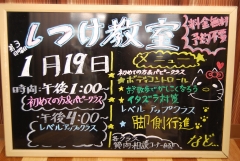 しつけ教室
料金無料
予約不要
1月19日
時間:午後1:00~
初めての方&パピークラス
午後4:00~
レベルアップクラス
メニュー
初めての方&パピークラス
ボディコントロール
イタズラ対策
レベルアップクラス
脚側行進
など…